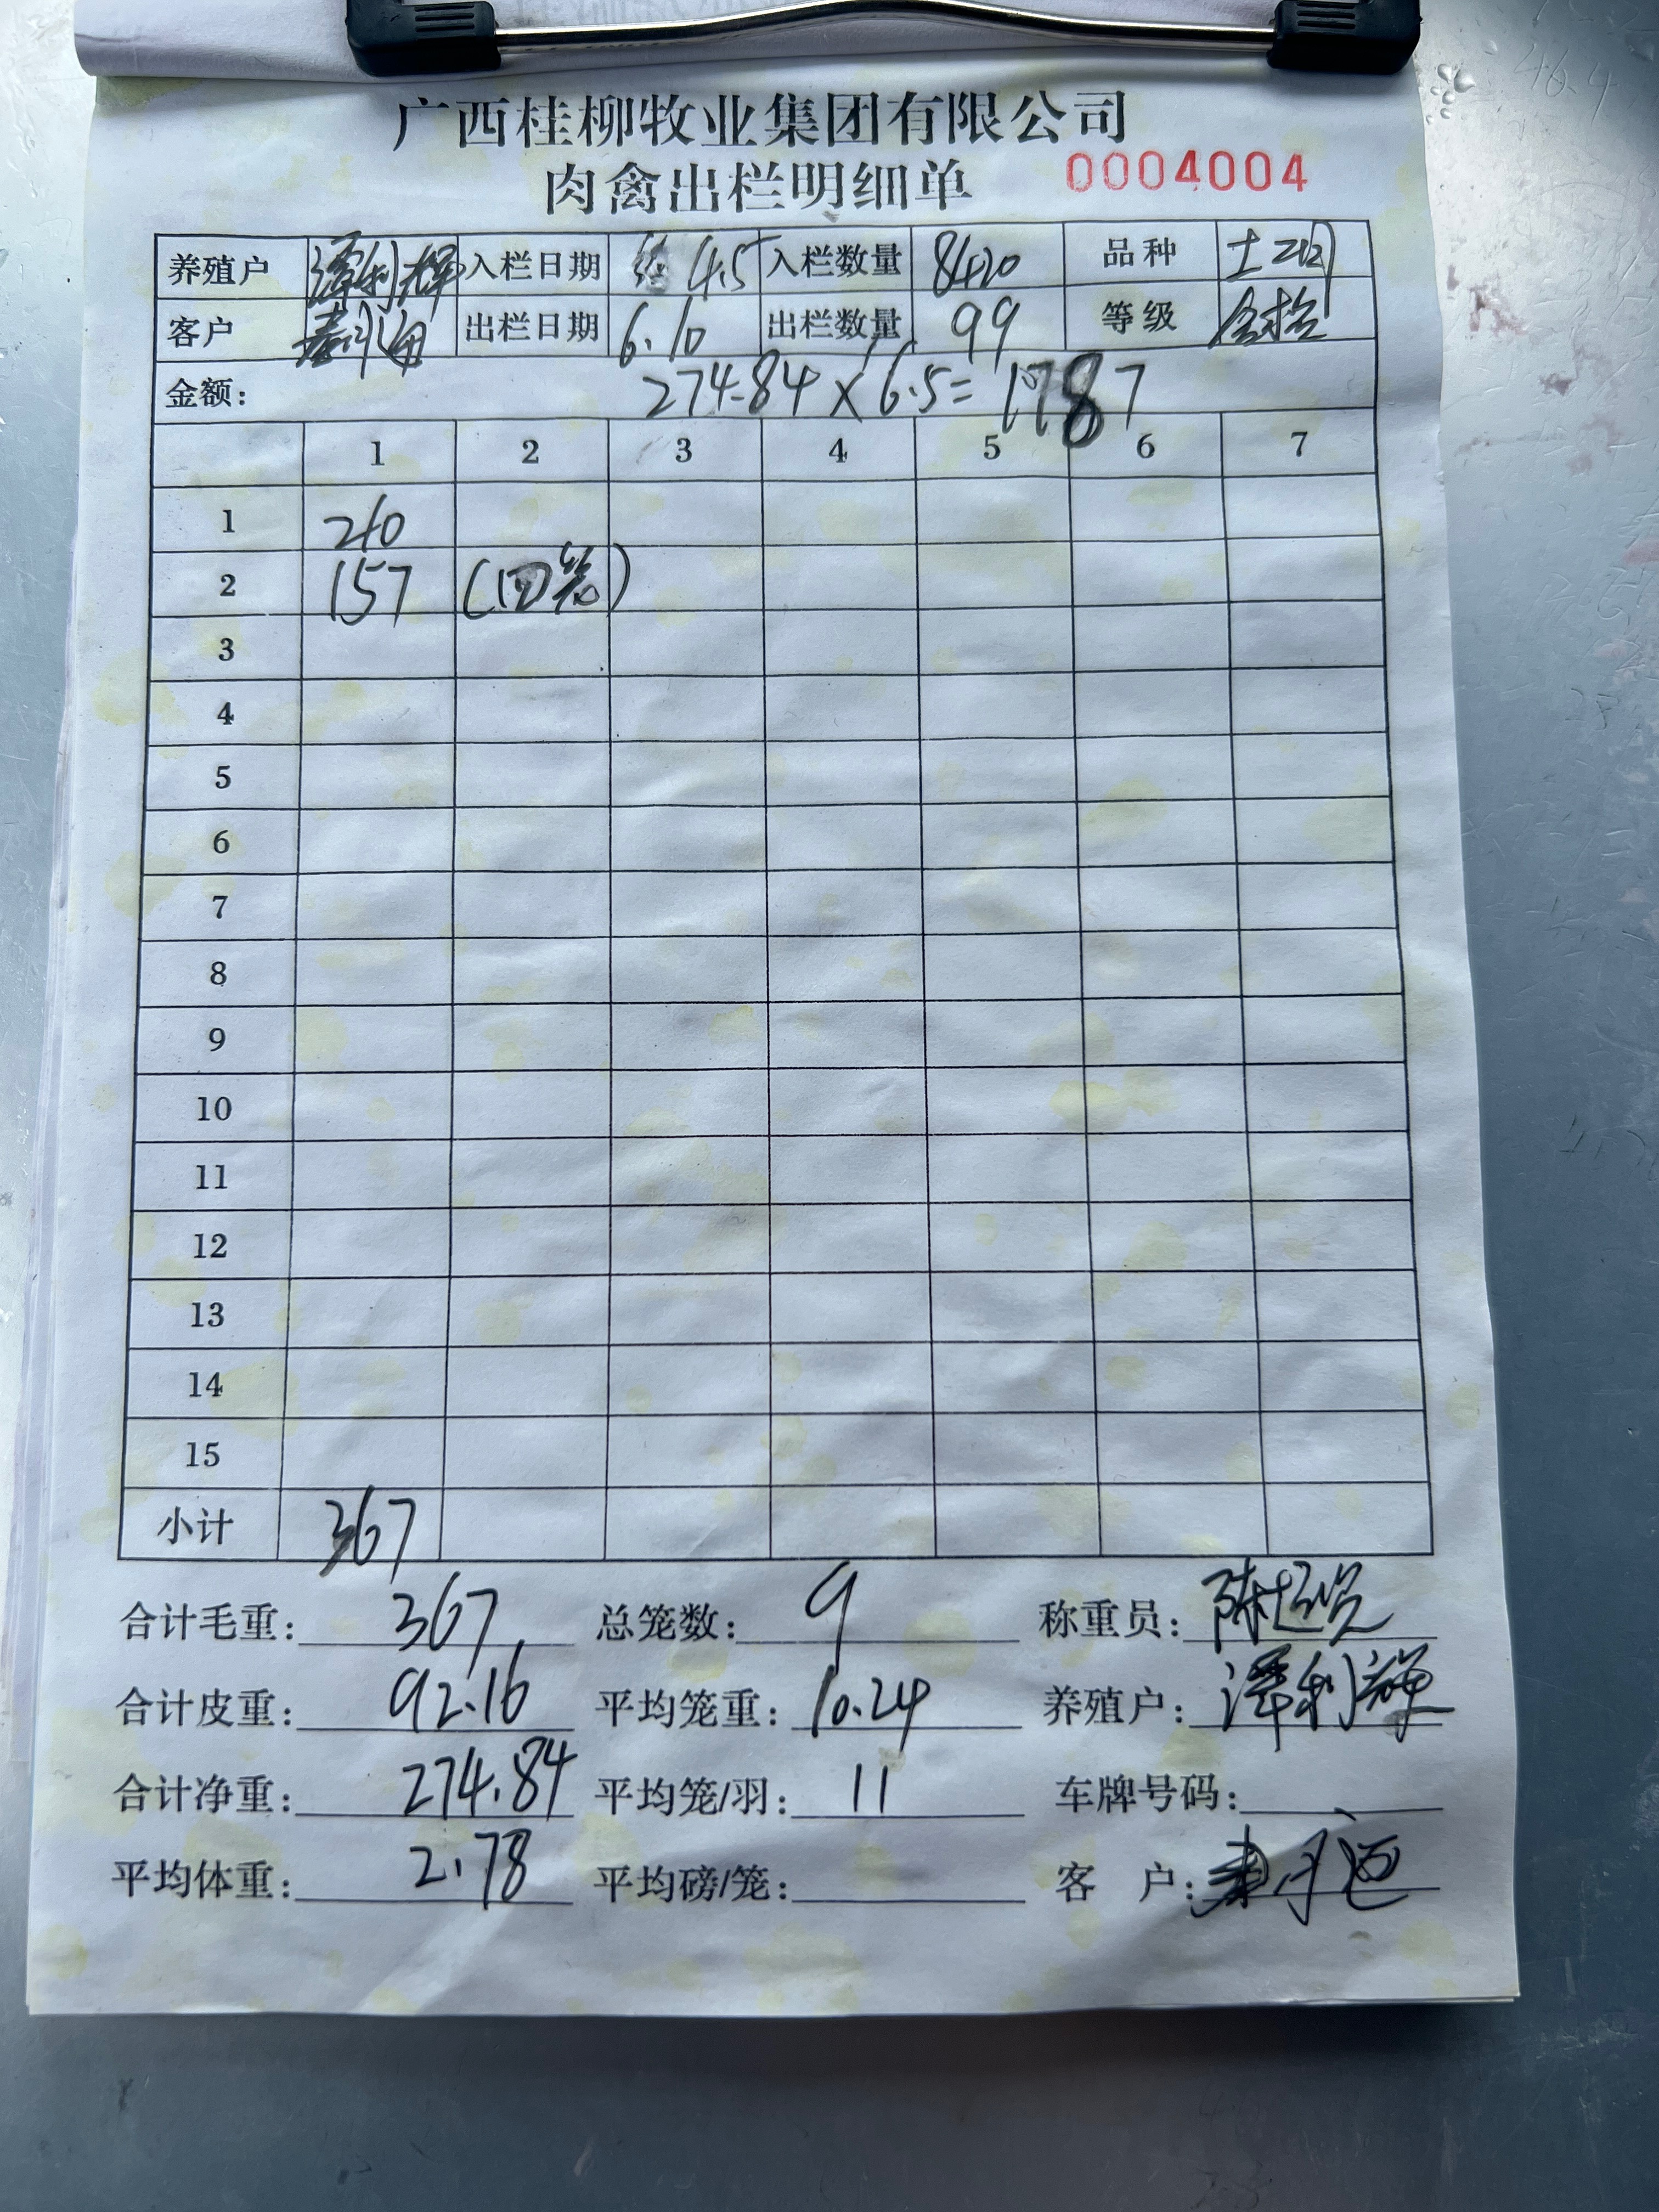 广西桂柳牧业集团有限公司
肉禽出栏明细单 0004004
养殖户 泽利辉 入栏日期 4.5 入栏数量 8420 品种 土
客户 出栏日期 6.10 出栏数量 99 等级
金额： 274.84 × 6.5 = 1787
1 2 3 4 5 6 7
1 210
2 157 (四笼)
3
4
5
6
7
8
9
10
11
12
13
14
15
小计 367
合计毛重： 367 总笼数： 9 称重员： 陈
合计皮重： 92.16 平均笼重： 10.24 养殖户： 泽利辉
合计净重： 274.84 平均笼/羽： 11 车牌号码：
平均体重： 2.78 平均磅/笼： 客 户：